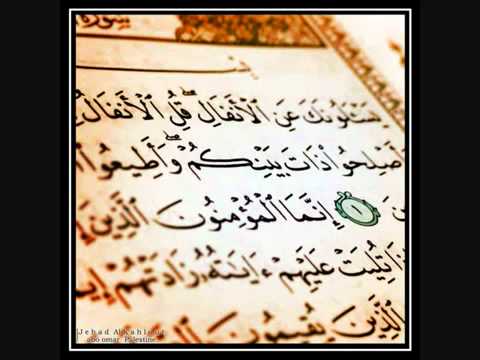 سورة
يَسْـَٔلُونَكَ عَنِ ٱلْأَنفَالِ ۖ قُلِ ٱلْأَنفَالُ
أَصْلِحُوا۟ ذَاتَ بَيْنِكُمْ ۖ وَأَطِيعُوا۟
١ إِنَّمَا ٱلْمُؤْمِنُونَ ٱلَّذِينَ
تُلِيَتْ عَلَيْهِمْ ءَايَـٰتُهُۥ زَادَتْهُمْ
ٱلَّذِينَ يُقِيمُونَ
Jehad Alkahlout
abo omar Palestine